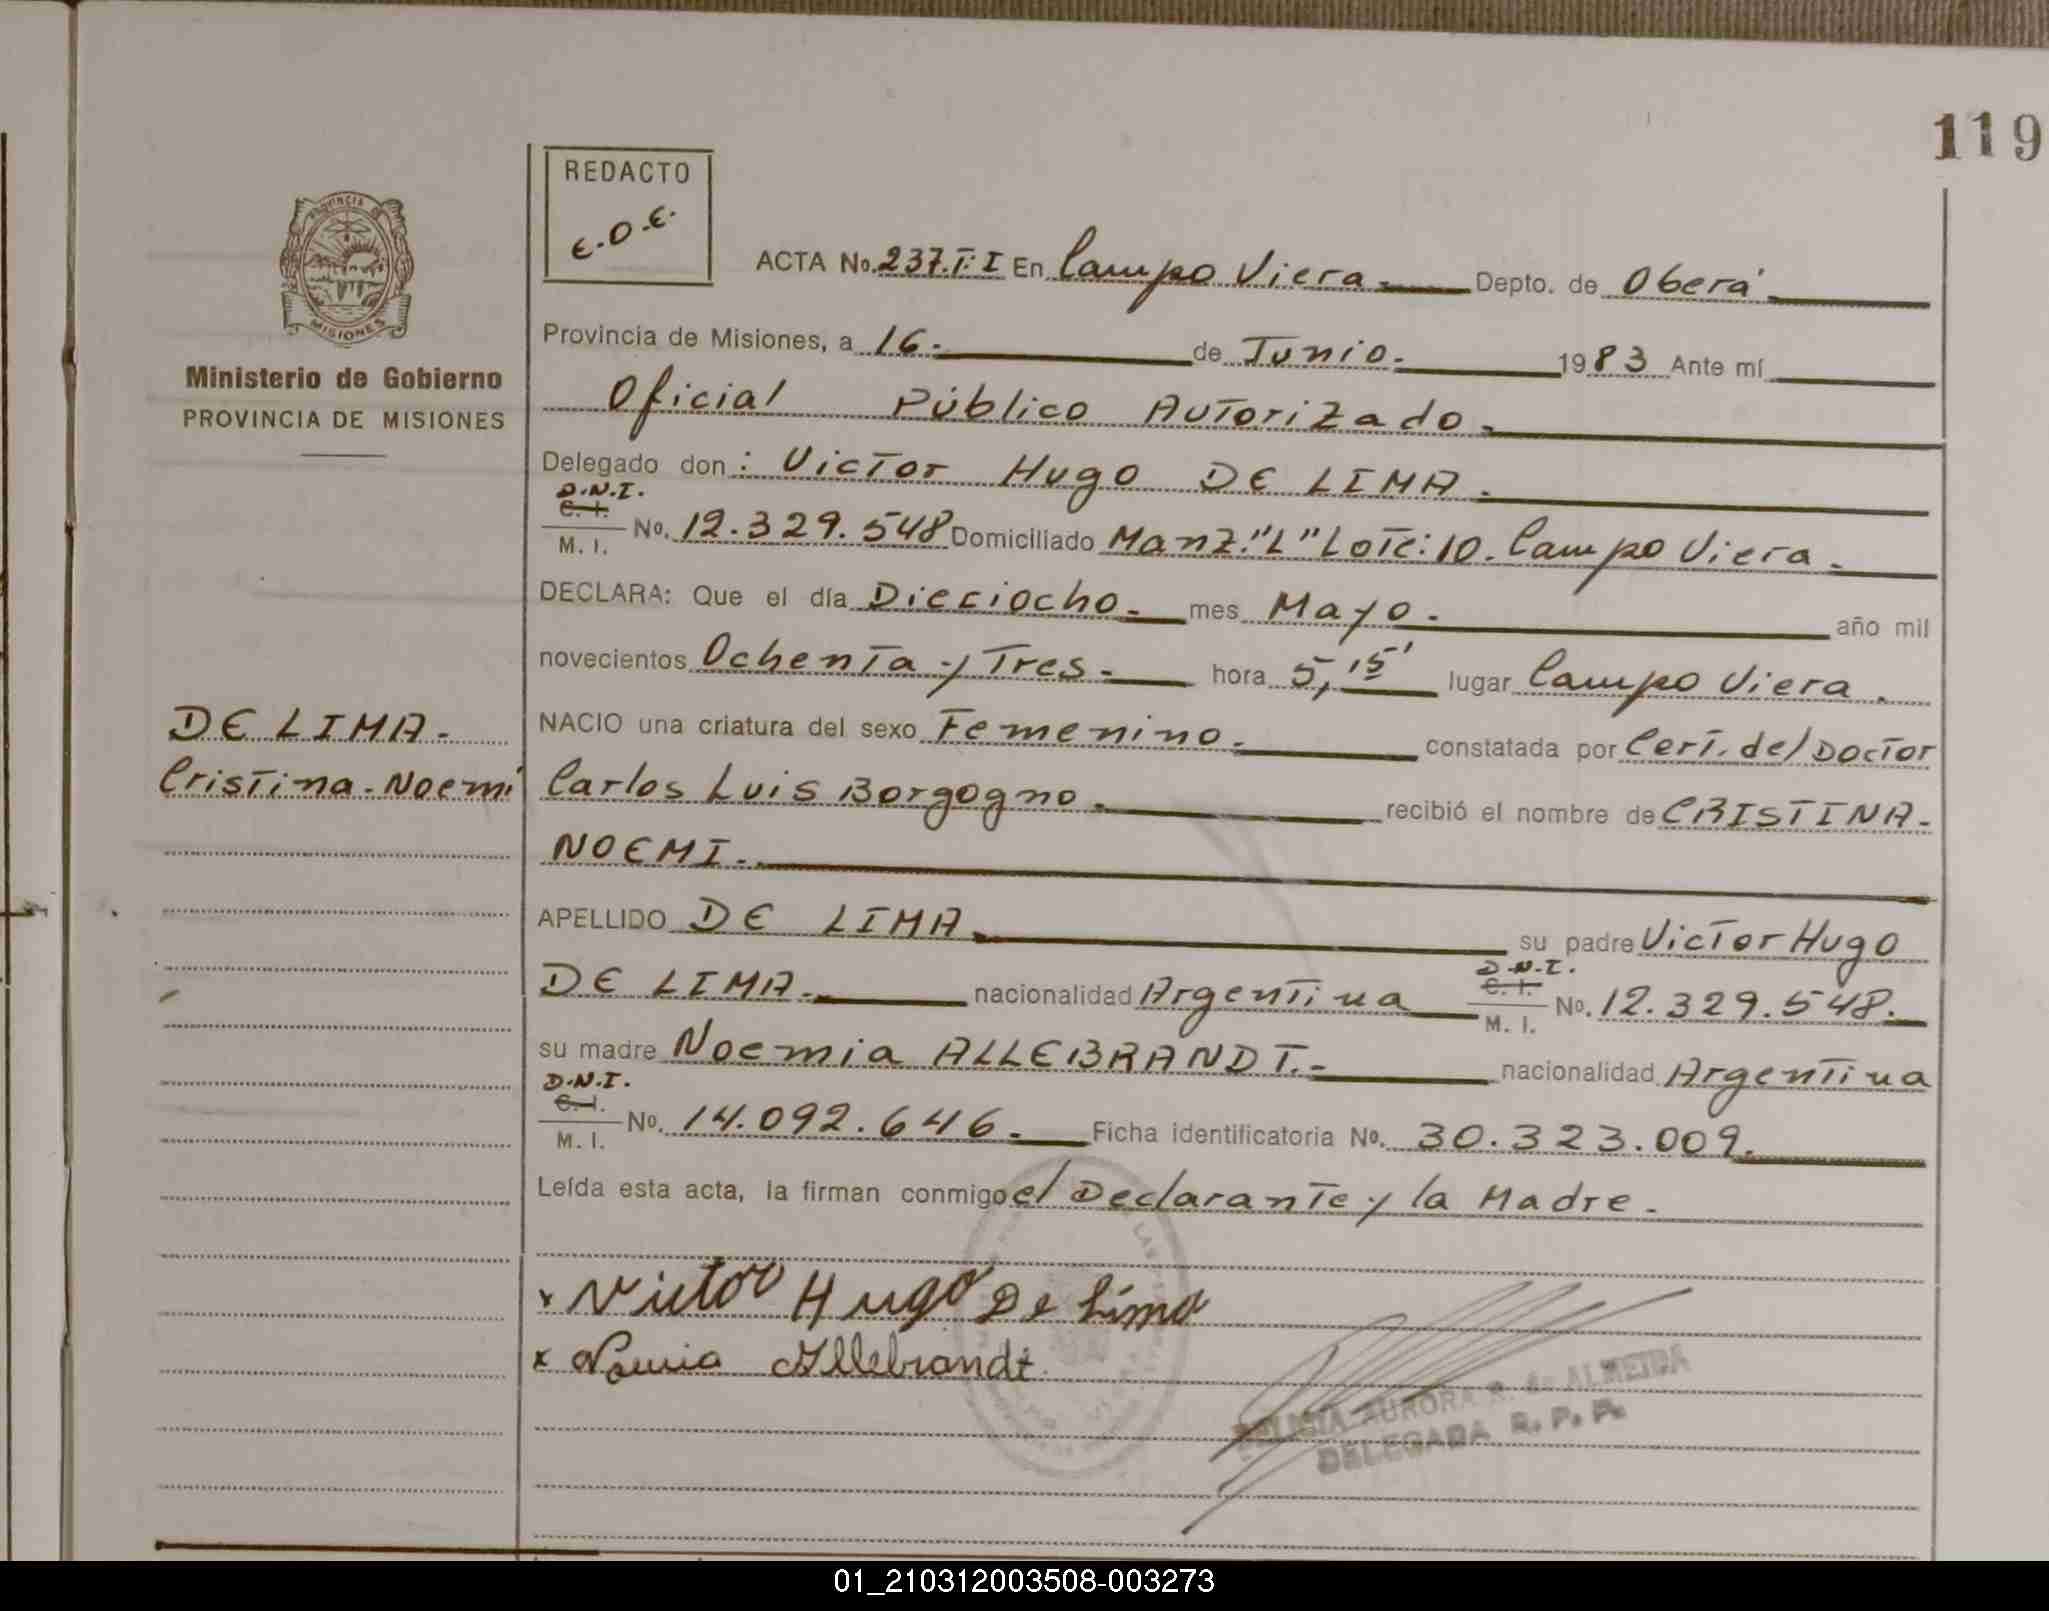 119
REDACTO
E.O.E.
PROVINCIA DE
MISIONES
Ministerio de Gobierno
PROVINCIA DE MISIONES
ACTA No. 237.T:I En Campo Viera.- Depto. de Oberá
Provincia de Misiones, a 16.- de Junio.- 1983 Ante mí
Oficial Público Autorizado.-
Delegado don: Victor Hugo DE LIMA.-
D.N.I.
C. I.
M. I. No. 12.329.548 Domiciliado Manz."L" Lote:10. Campo Viera.-
DECLARA: Que el día Dieciocho.- mes Mayo.- año mil
novecientos Ochenta y Tres.- hora 5,15' lugar Campo Viera.
NACIO una criatura del sexo Femenino.- constatada por Cert. del Doctor
DE LIMA.-
Cristina-Noemí
Carlos Luis Borgogno.- recibió el nombre de CRISTINA-
NOEMI.-
APELLIDO DE LIMA.- su padre Victor Hugo
DE LIMA.- nacionalidad Argentina D.N.I. C. I. M. I. No. 12.329.548.-
su madre Noemia ALLEBRANDT.- nacionalidad Argentina
D.N.I.
C. I.
M. I. No. 14.092.646.- Ficha identificatoria No. 30.323.009.
Leída esta acta, la firman conmigo el Declarante y la Madre.-
x Victor Hugo De Lima
x Noemia Allebrandt.
AURORA R. de ALMEIDA
DELEGADA R. P. P.
01_210312003508-003273